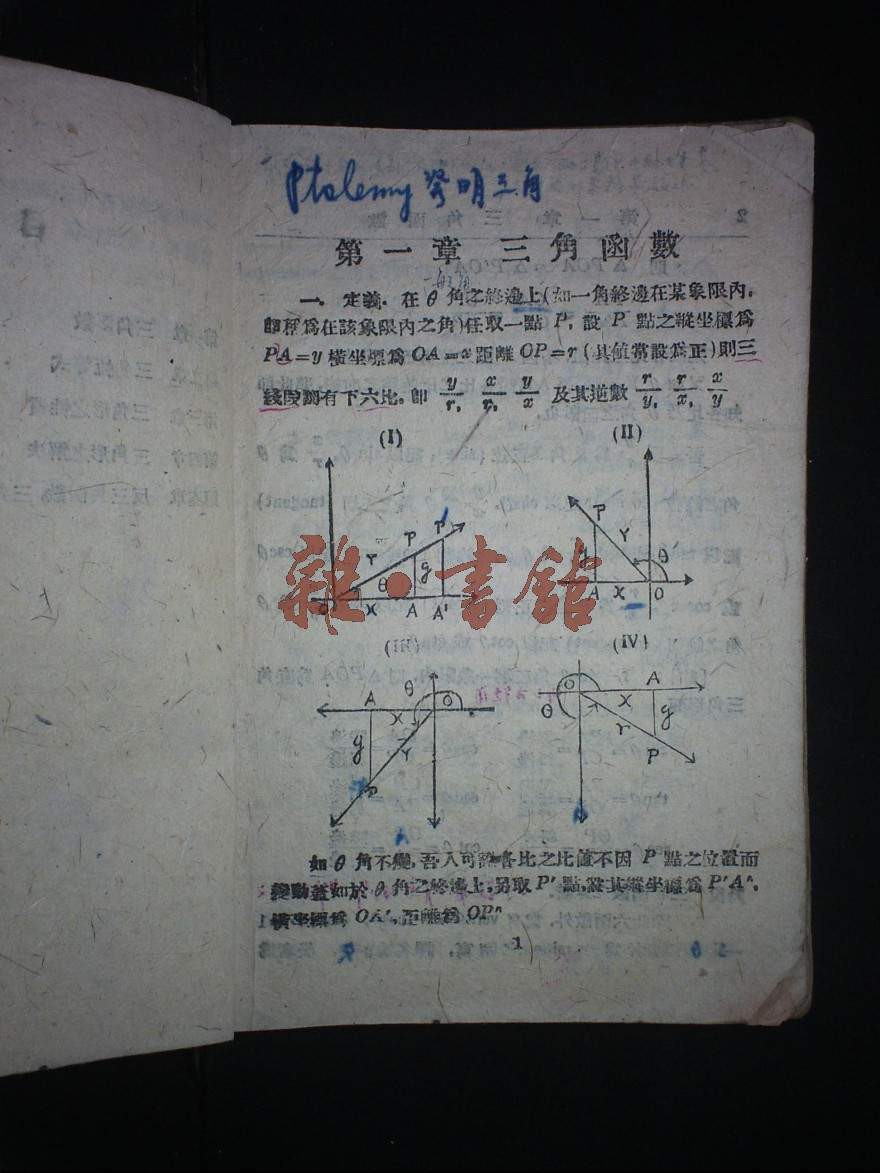 Ptolemy 發明三角
第一章 三角函數
一般角
一. 定義. 在 θ 角之終邊上(如一角終邊在某象限內,
即稱爲在該象限內之角)任取一點 P, 設 P 點之縱坐標爲
PA=y 橫坐標爲 OA=x 距離 OP=r (其値當設爲正)則三
綫段間有下六比。即 y/r, x/r, y/x 及其逆數 r/y, r/x, x/y
(I)
(II)
r P P' θ y O x A A'
P r y θ A x O
雜·書館
(III)
(IV)
A θ O x y r
O A θ x y r P
如 θ 角不變, 吾人可證各比之比値不因 P 點之位置而
變動蓋如於 θ 角之終邊上, 另取 P' 點, 設其縱坐標爲 P'A',
橫坐標爲 OA', 距離爲 OP'
1